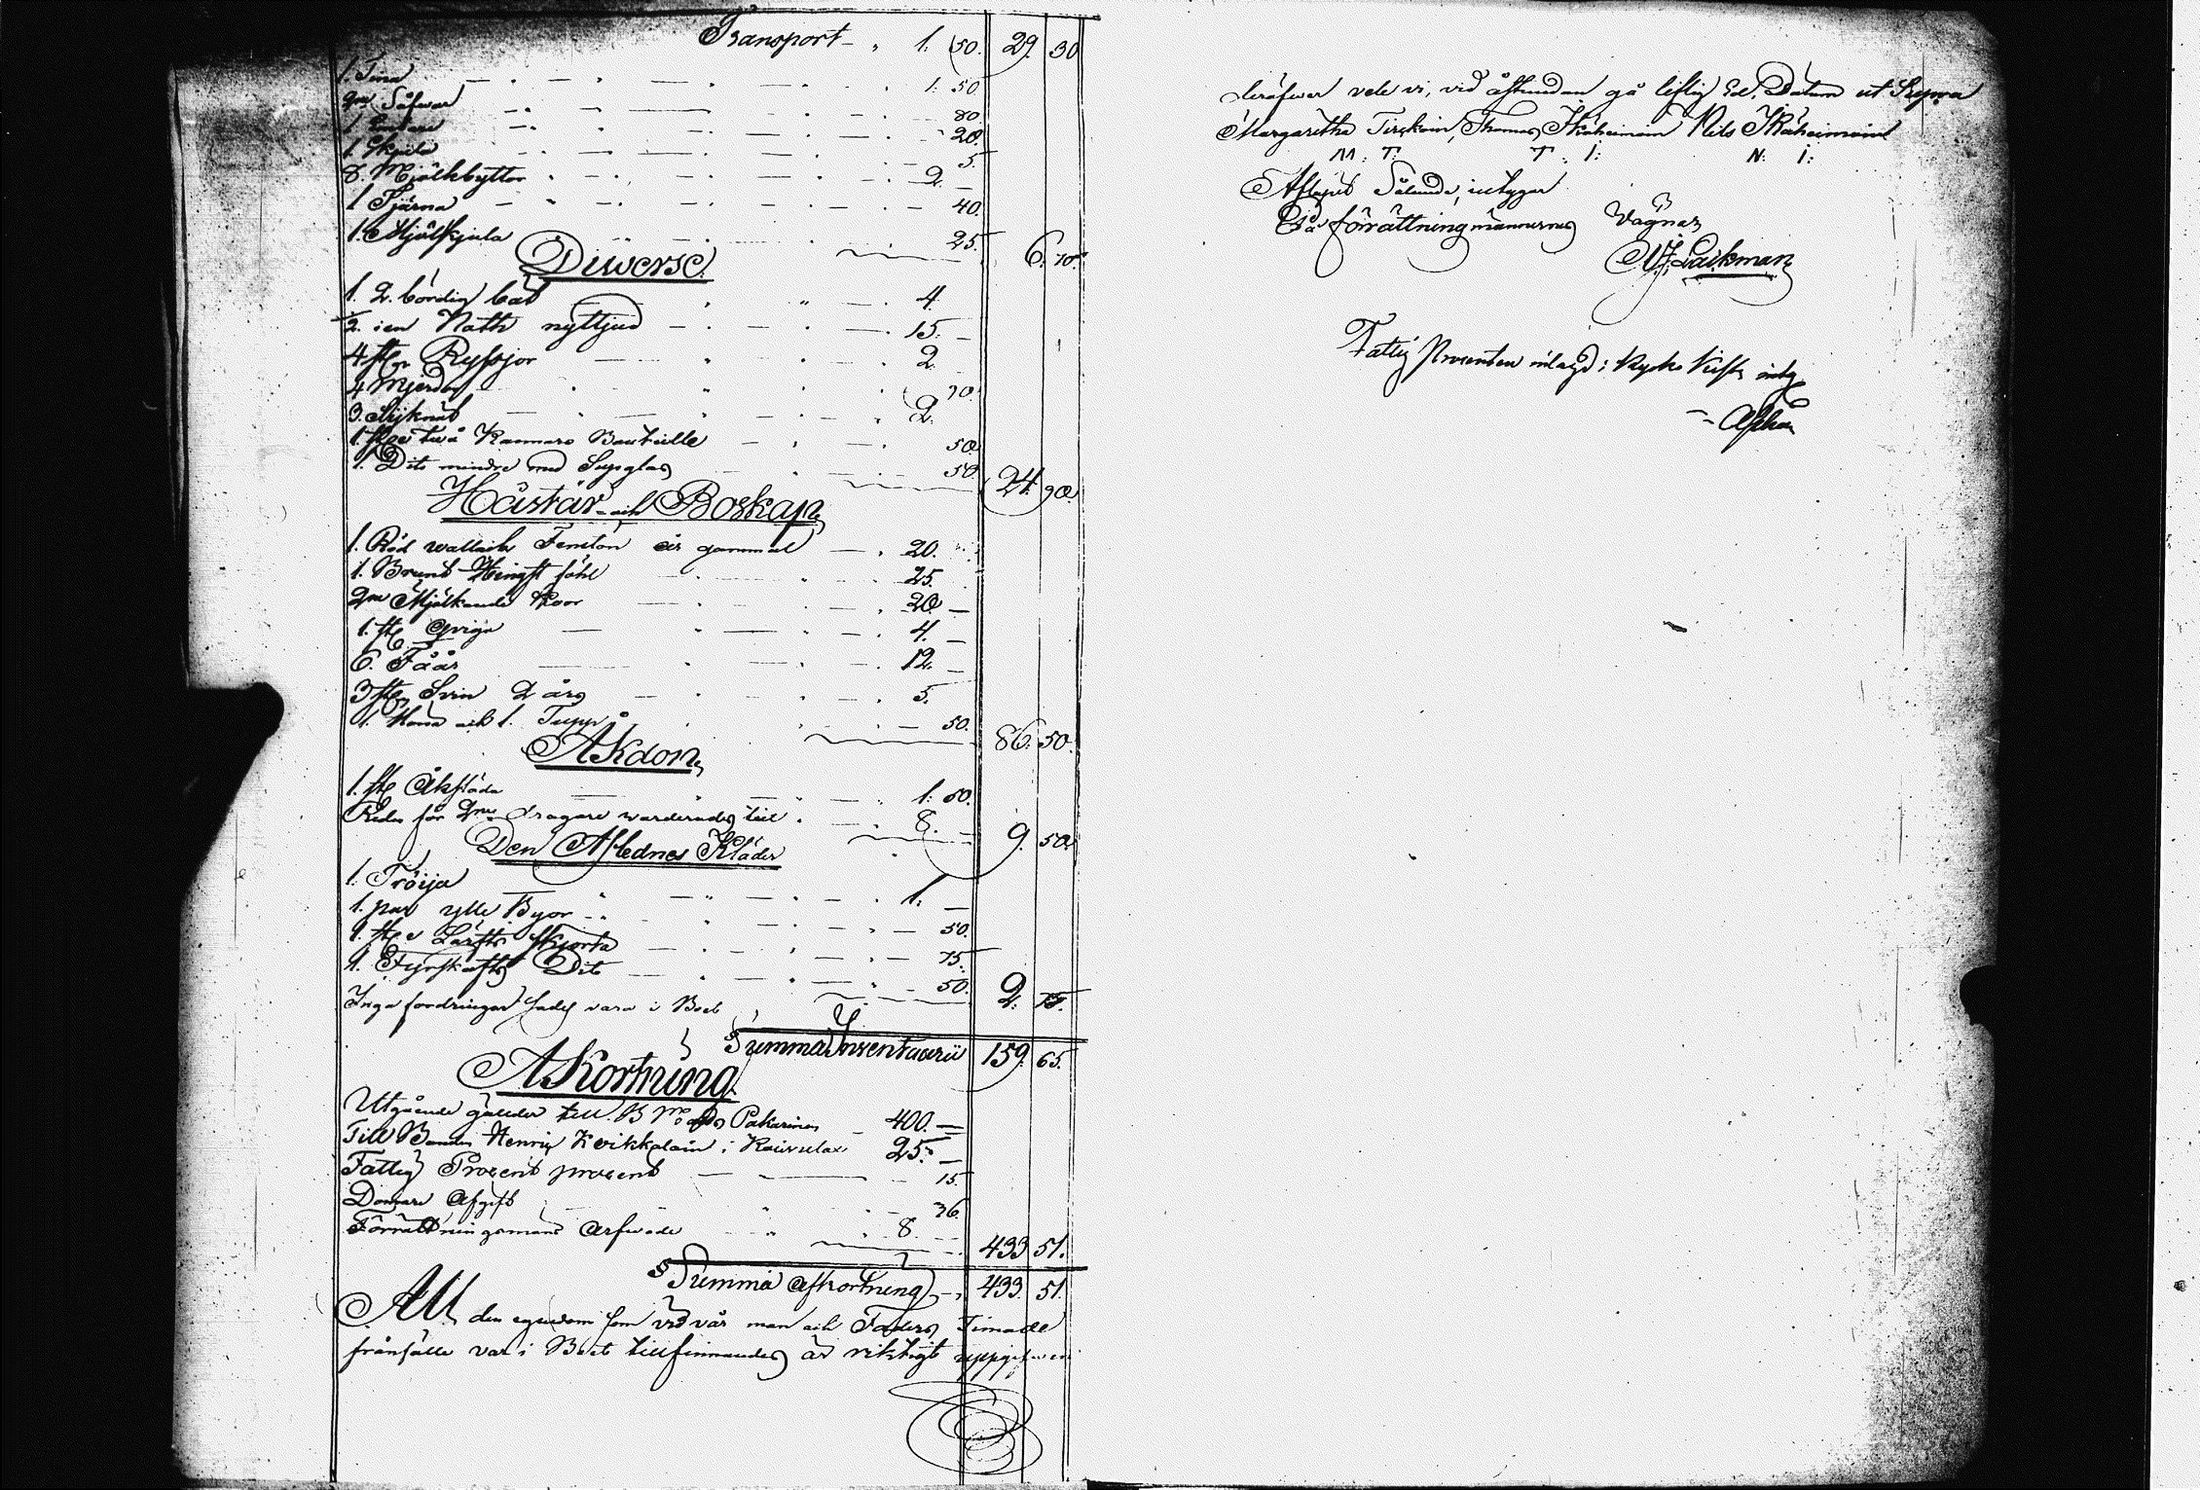 Transport " 1. 50. 29. 30
1. Tina 1: 50
2ne Såfwar 80.
1 Embare 20.
1. Skjula 5.
8. Mjölkbyttor 2. —
1 Tjärna 40.
1. Mjölkskjula 25. 6. 70.
Diwerse
1. 2. bördig båt 4.
1/2. i en Noth nyttjud 15. —
4 st. Ryssjor 2.
4 Mjerdor 90.
3. Sijknät 2.
1. st. två Kannars Bouteille 50.
1. Dito mindre med Supglas 50. 24. 90.
Hästar och Boskap
1. Röd wallack Femton år gammal 20.
1. Brunt Hingst föhl 25.
2ne Mjölkande Koor 20. —
1. st. Qviga 4. —
6. Fåår 12. —
3 st. Svin 2 års 5.
1. Höna och 1. Tupp 50. 86. 50.
Åkdon
1. st. Åksläda 1: 50.
Redes för 2ne dragare warderades till 8. — 9. 50.
Den Aflednes Kläder
1. Tröija 1. —
1. par ylle Byxor 50.
1. st. Lärfts skjorta 75.
1. Fyrskafts Dito 50. 2. 75.
Inga fordringar sades vara i Boet
Summa Inventarii 159. 65.
Afkortning
Utgående gälder till Pakarinen 400. —
Till Bonden Henric Kvikkolain i Koivulax 25. —
Fattig Procent procent 15.
Domare Afgift 36.
Förrättningsmans Arfwode 8. — 433 51.
Summa Afkortning 433. 51.
All den egendom som vid vår man och Faders Timade
frånfälle var i Boet tillfinnandes är riktigt uppgifwen
deröfwer vele vi, vid åstundan gå liflig Ed. Datum ut Supra
Margaretha Tirskoin, Thomas Ikäheimoin Nils Ikäheimoin
M: T: T: I: N: I:
Aflagdt Sålunda, intygar
På förrättningsmännernes Vägnar
Fattig Procenten inlagd i Kyrko Kista intyg